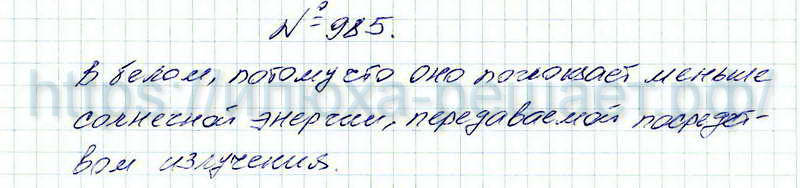 №985.
В белом, потому что оно поглощает меньше
солнечной энергии, передаваемой посредст-
вом излучения.